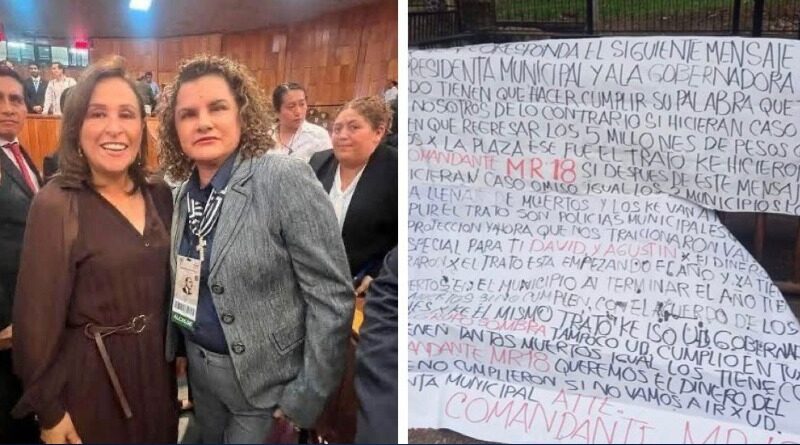 ALCALDE
CORRESPONDA EL SIGUIENTE MENSAJE
RESIDENTA MUNICIPAL Y A LA GOBERNADORA
DO TIENEN QUE HACER CUMPLIR SU PALABRA QUE
NOSOTROS DE LO CONTRARIO SI HICIERAN CASO
EN QUE REGRESAR LOS 5 MILLONES DE PESOS
S X LA PLAZA ESE FUE EL TRATO KE HICIERO
COMANDANTE MR18 SI DESPUES DE ESTE MENSA
ICIERAN CASO OMISO IGUAL LOS 2 MUNICIPIOS
A LLENAR DE MUERTOS Y LOS KE VAN A
PLIR EL TRATO SON POLICIAS MUNICIPALES
PROTECCION Y AHORA QUE NOS TRAICIONARON VA
SPECIAL PARA TI DAVID Y AGUSTIN X EL DINERO
RARON X EL TRATO ESTA EMPEZANDO EL AÑO Y YA TIE
ERTOS EN EL MUNICIPIO AL TERMINAR EL AÑO TIE
SI NO CUMPLEN CON EL ACUERDO DE LOS
EL MISMO TRATO KE ISO UD GOBERNA
SOMBRA TAMPOCO UD CUMPLIO EN TU
ENEN TANTOS MUERTOS IGUAL LOS TIENE CO
ANDANTE MR18 QUEREMOS EL DINERO DEL
NO CUMPLIERON SI NO VAMOS A IR X UD.
ENTA MUNICIPAL ATTE.
COMANDANTE M